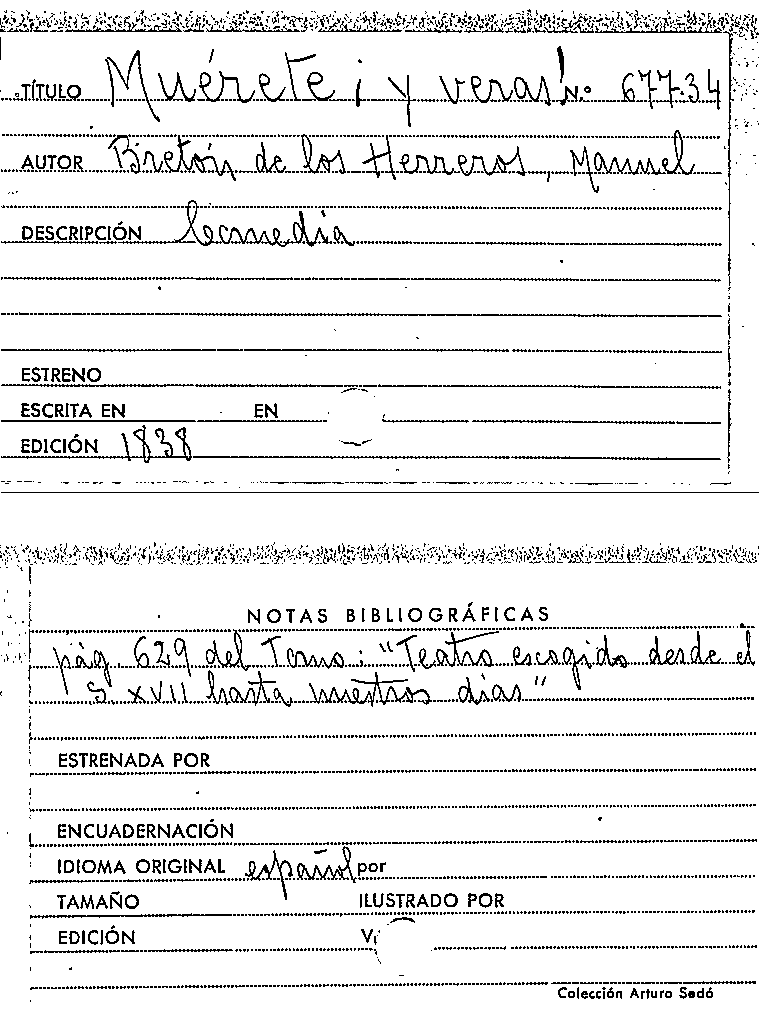 TÍTULO Muérete ¡ y veras! N.º 677-34
AUTOR Bretón de los Herreros, Manuel
DESCRIPCIÓN Comedia
ESTRENO
ESCRITA EN EN
EDICIÓN 1838
NOTAS BIBLIOGRÁFICAS
pág. 629 del Tomo: "Teatro escogido desde el
S. XVII hasta nuestros días"
ESTRENADA POR
ENCUADERNACIÓN
IDIOMA ORIGINAL español por
TAMAÑO ILUSTRADO POR
EDICIÓN
Colección Arturo Sedó